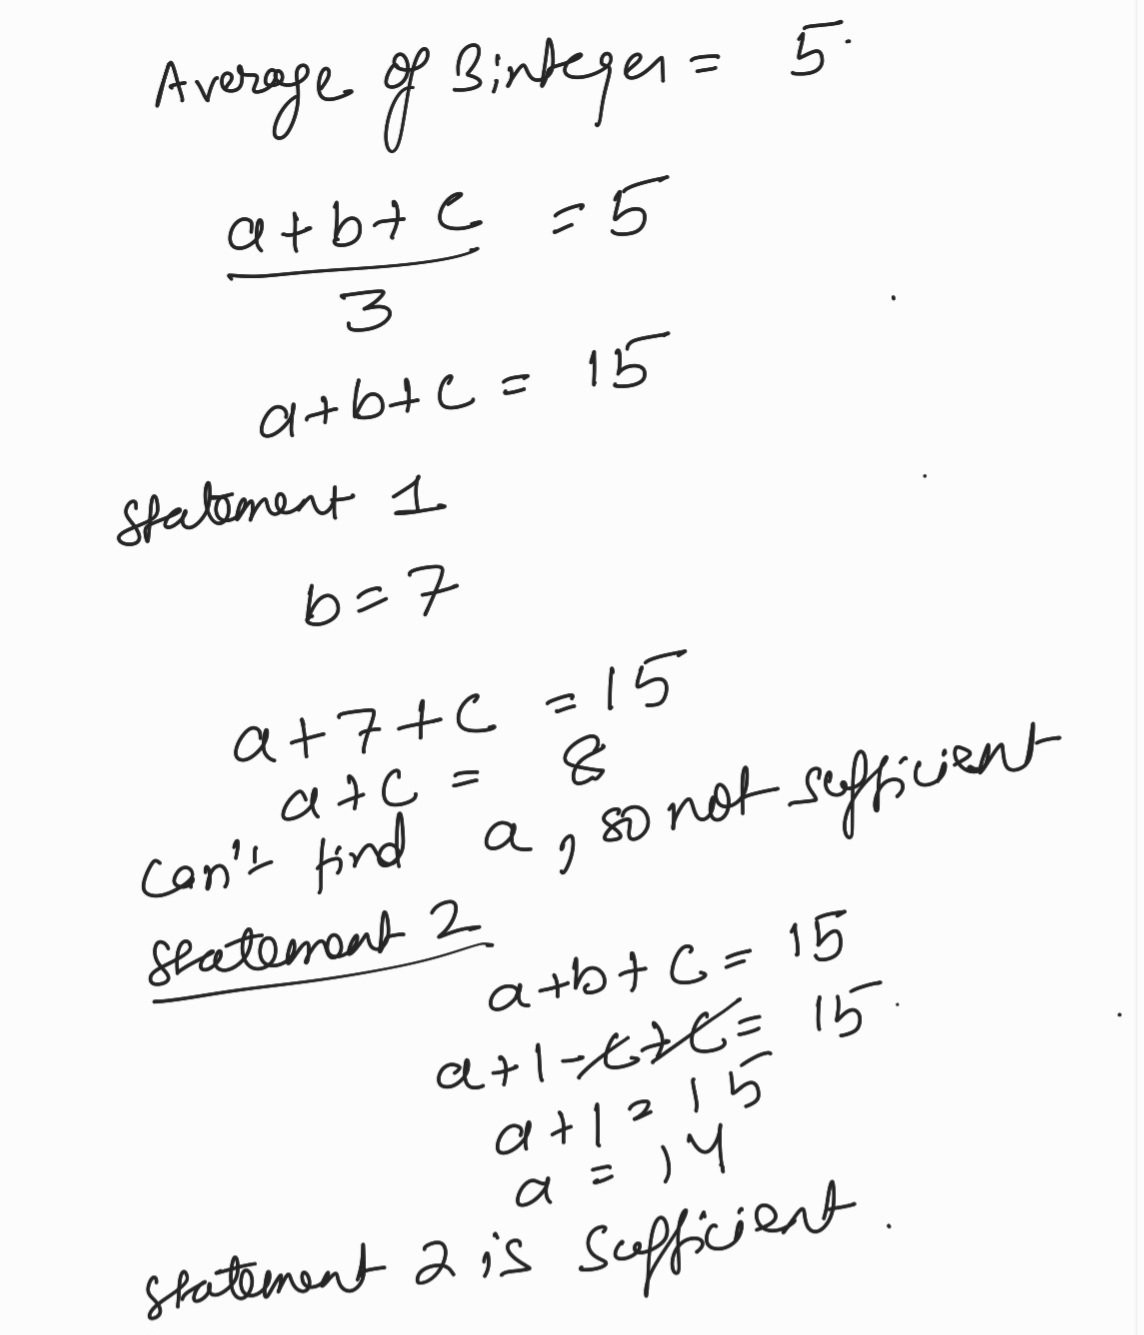 Average of 3 integer = 5
a + b + c = 5
3
a + b + c = 15
statement 1
b = 7
a + 7 + c = 15
a + c = 8
can't find a, so not sufficient
statement 2
a + b + c = 15
a + 1 - c + c = 15
a + 1 = 15
a = 14
statement 2 is sufficient.